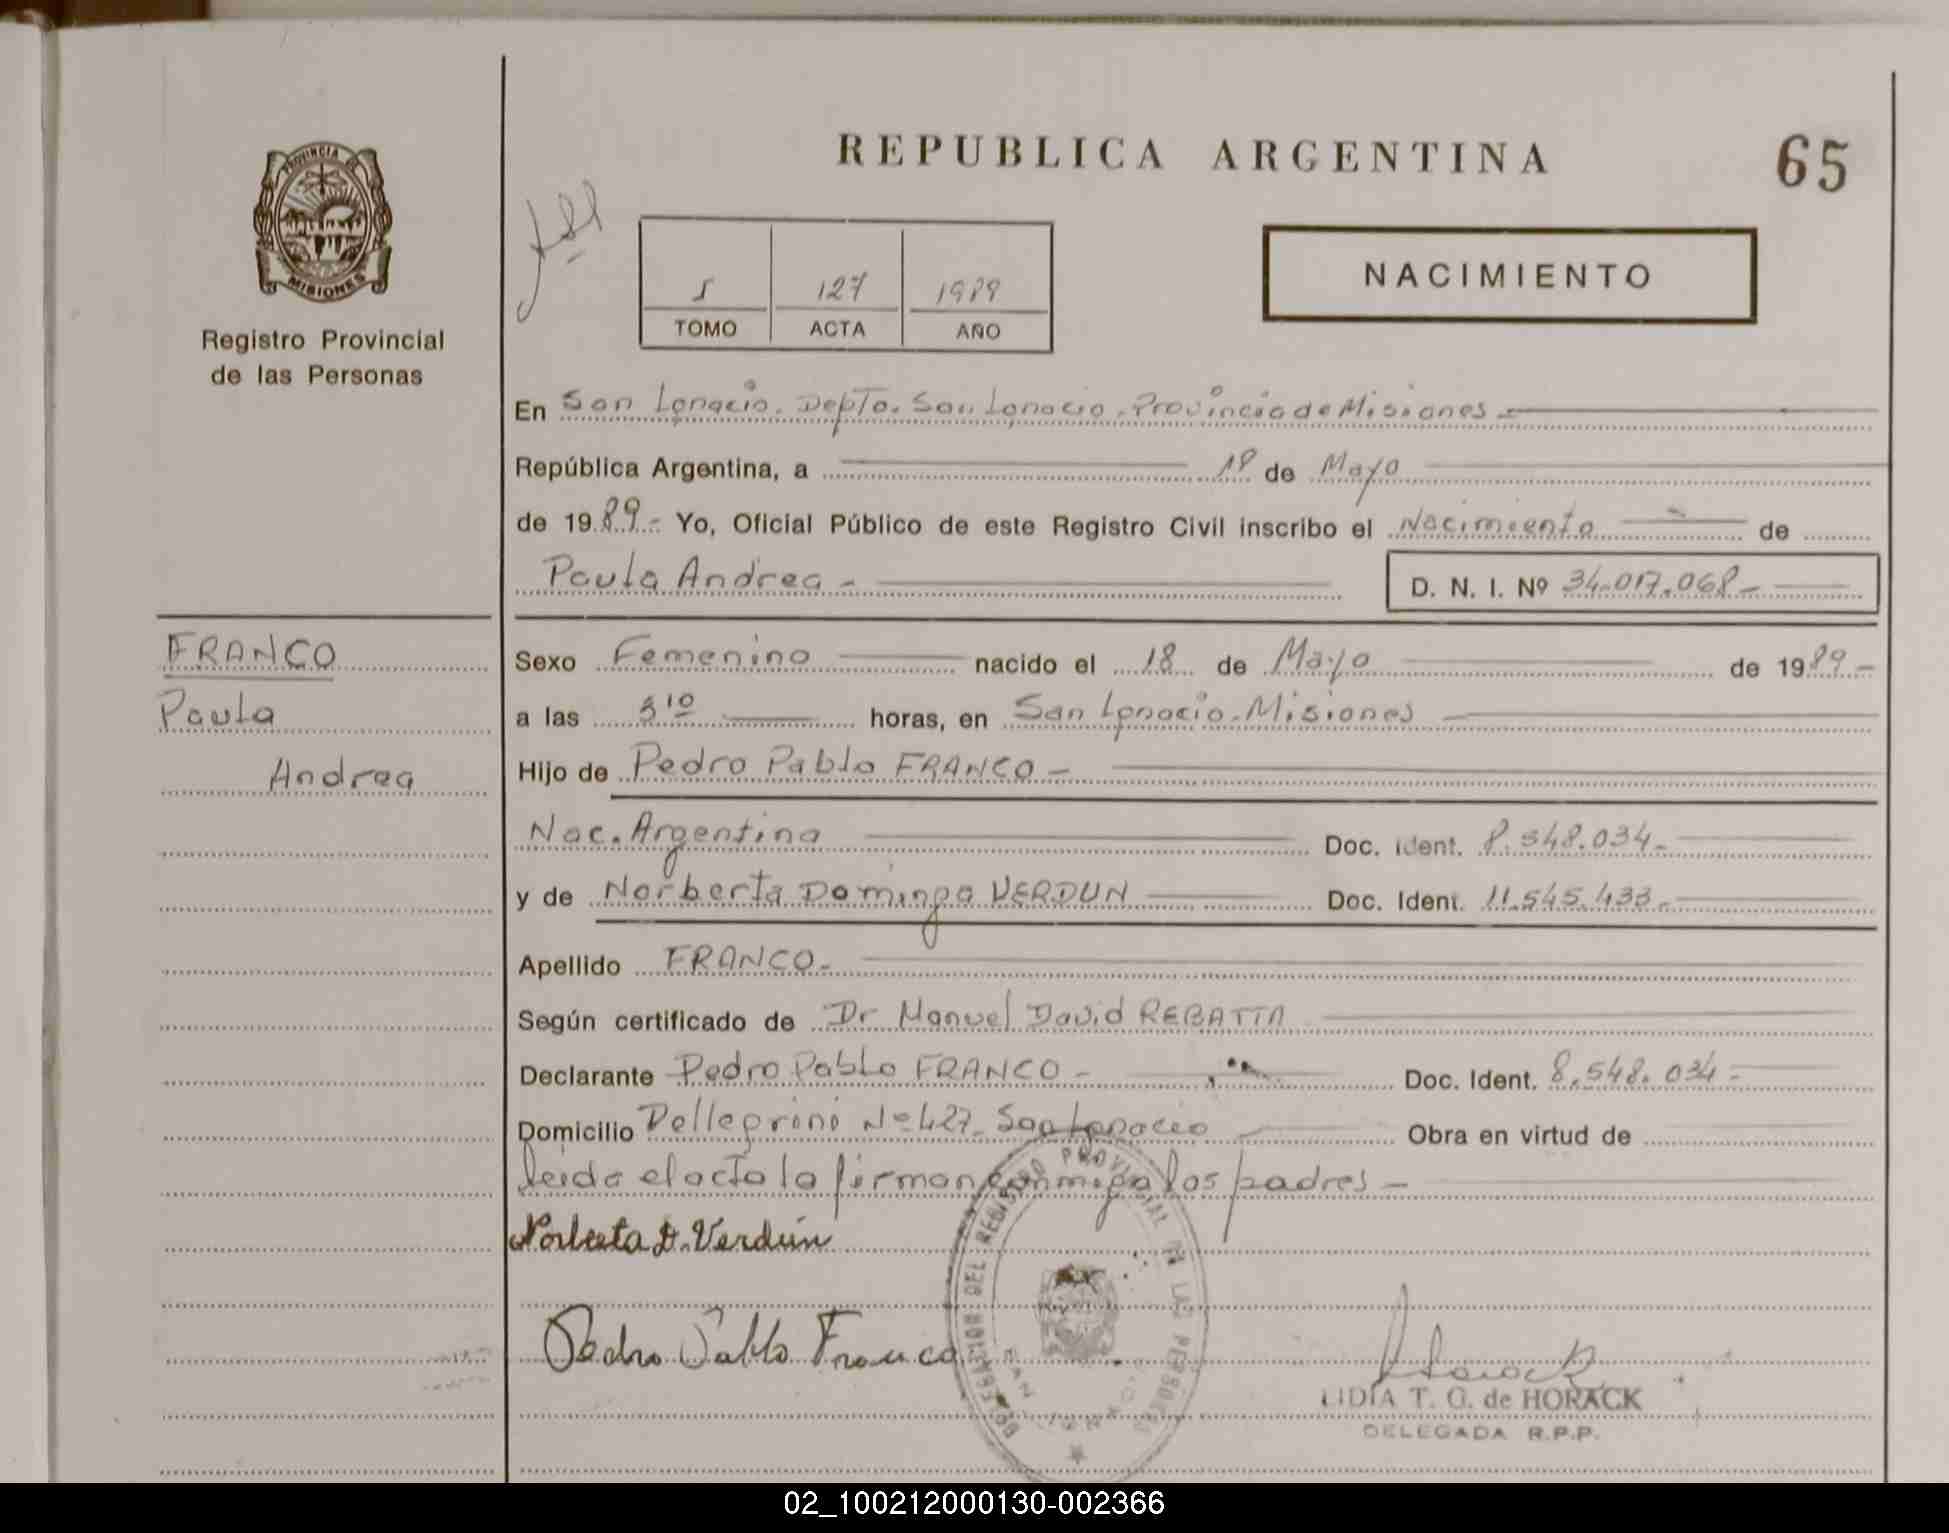 REPUBLICA ARGENTINA
65
PROVINCIA DE
MISIONES
Registro Provincial
de las Personas
5 127 1989
TOMO ACTA AÑO
NACIMIENTO
En San Ignacio. Depto. San Ignacio. Provincia de Misiones
República Argentina, a 18 de Mayo
de 1989.- Yo, Oficial Público de este Registro Civil inscribo el Nacimiento de
Paula Andrea - D. N. I. Nº 34.017.068 -
FRANCO
Paula
Andrea
Sexo Femenino nacido el 18 de Mayo de 1989 -
a las 3 10 horas, en San Ignacio - Misiones
Hijo de Pedro Pablo FRANCO -
Nac. Argentina Doc. ident. 8.548.034 -
y de Norberta Dominga VERDUN Doc. Ident. 11.545.433 -
Apellido FRANCO -
Según certificado de Dr Manuel David REBATTA
Declarante Pedro Pablo FRANCO - Doc. Ident. 8.548.034 -
Domicilio Pellegrini Nº 427 - San Ignacio Obra en virtud de
leida el acta la firman conmigo los padres -
Norberta D. Verdún
Pedro Pablo Franco
DELEGACION DEL REGISTRO PROVINCIAL DE LAS PERSONAS
SAN IGNACIO
Horack
LIDIA T. G. de HORACK
DELEGADA R.P.P.
02_100212000130-002366